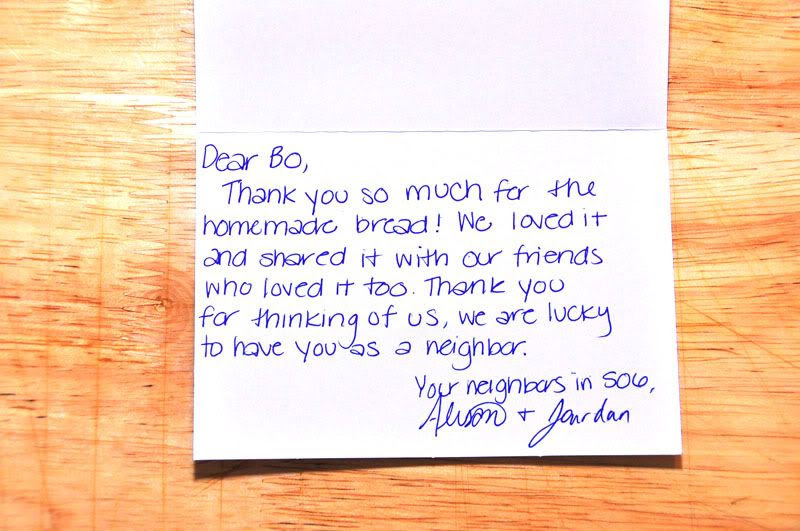 Dear Bo,
Thank you so much for the
homemade bread! We loved it
and shared it with our friends
who loved it too. Thank you
for thinking of us, we are lucky
to have you as a neighbor.
Your neighbors in 506,
Alison + Jourdan